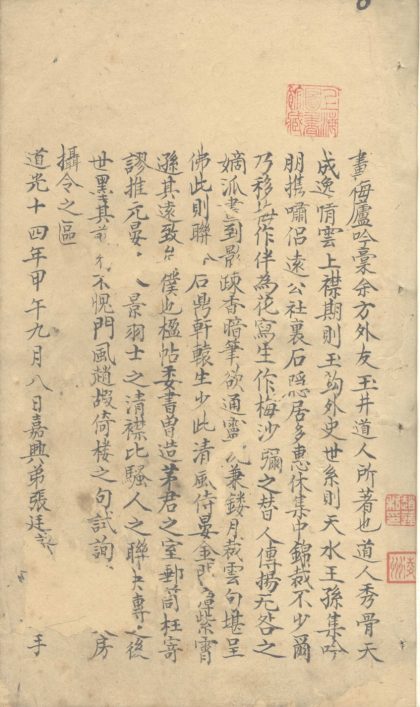 上海圖書館藏
畫梅廬吟稾余方外友玉井道人所著也道人秀骨天
成逸情雲上襟期則玉鈎外史世系則天水王孫集吟
朋携嘯侶遠公社裏石隱居多惠休集中錦裁不少爾
乃移梅作伴為花寫生作梅沙彌之替人傳揚无咎之
嫡派畫到影疎香暗筆欲通靈兼鏤月裁雲句堪呈
佛此則聯石鼎軒轅生少此清風侍晏金紫霄
遜其遠致僕也楹帖委書曽造茅君之室郵筒枉寄
謬推元晏景羽士之清襟比騷人之聯專後
世黑其不愧門風趙嘏倚樓之句試詢房
攝令之區
道光十四年甲午九月八日嘉興弟張廷手